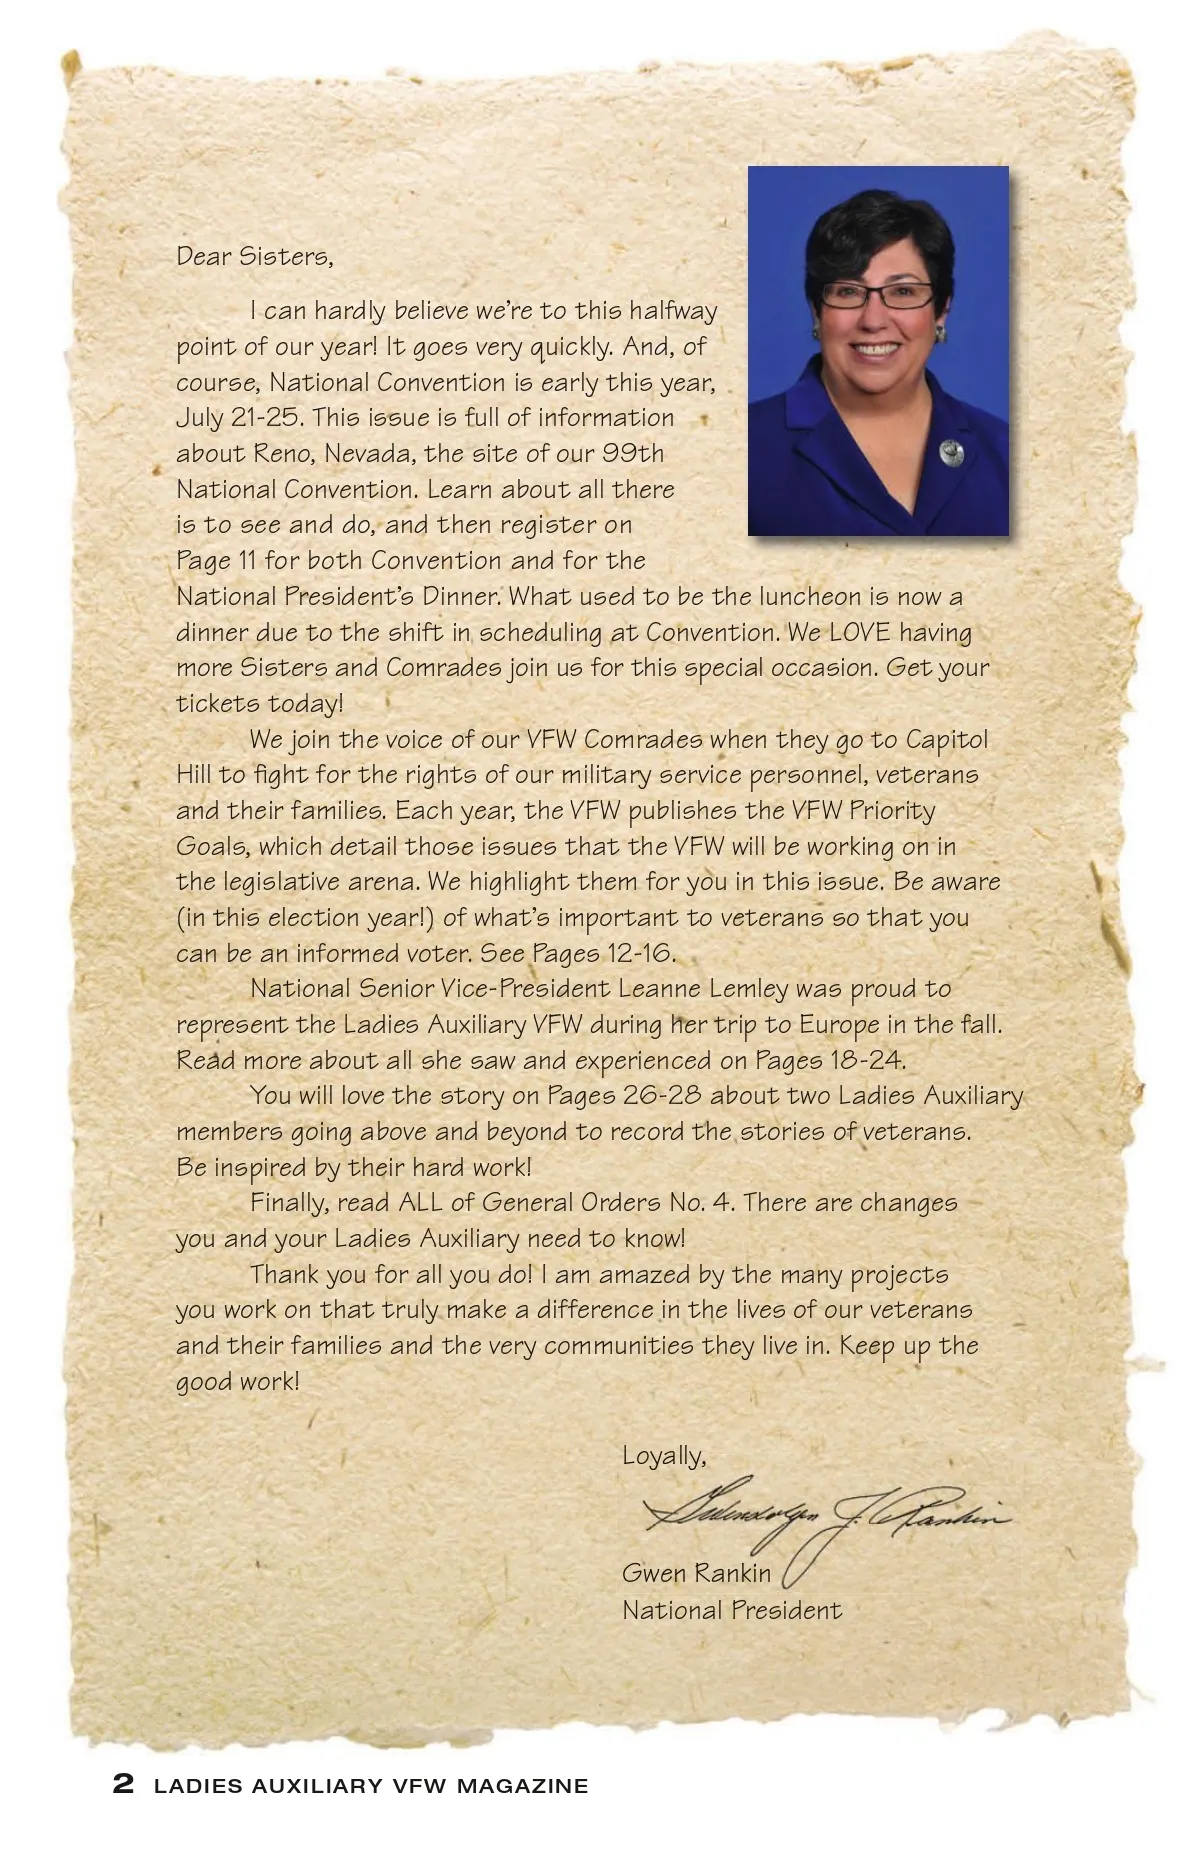 Dear Sisters,
I can hardly believe we’re to this halfway
point of our year! It goes very quickly. And, of
course, National Convention is early this year,
July 21-25. This issue is full of information
about Reno, Nevada, the site of our 99th
National Convention. Learn about all there
is to see and do, and then register on
Page 11 for both Convention and for the
National President’s Dinner. What used to be the luncheon is now a
dinner due to the shift in scheduling at Convention. We LOVE having
more Sisters and Comrades join us for this special occasion. Get your
tickets today!
We join the voice of our VFW Comrades when they go to Capitol
Hill to fight for the rights of our military service personnel, veterans
and their families. Each year, the VFW publishes the VFW Priority
Goals, which detail those issues that the VFW will be working on in
the legislative arena. We highlight them for you in this issue. Be aware
(in this election year!) of what’s important to veterans so that you
can be an informed voter. See Pages 12-16.
National Senior Vice-President Leanne Lemley was proud to
represent the Ladies Auxiliary VFW during her trip to Europe in the fall.
Read more about all she saw and experienced on Pages 18-24.
You will love the story on Pages 26-28 about two Ladies Auxiliary
members going above and beyond to record the stories of veterans.
Be inspired by their hard work!
Finally, read ALL of General Orders No. 4. There are changes
you and your Ladies Auxiliary need to know!
Thank you for all you do! I am amazed by the many projects
you work on that truly make a difference in the lives of our veterans
and their families and the very communities they live in. Keep up the
good work!
Loyally,
Gwendolyn J. Rankin
Gwen Rankin
National President
2 LADIES AUXILIARY VFW MAGAZINE